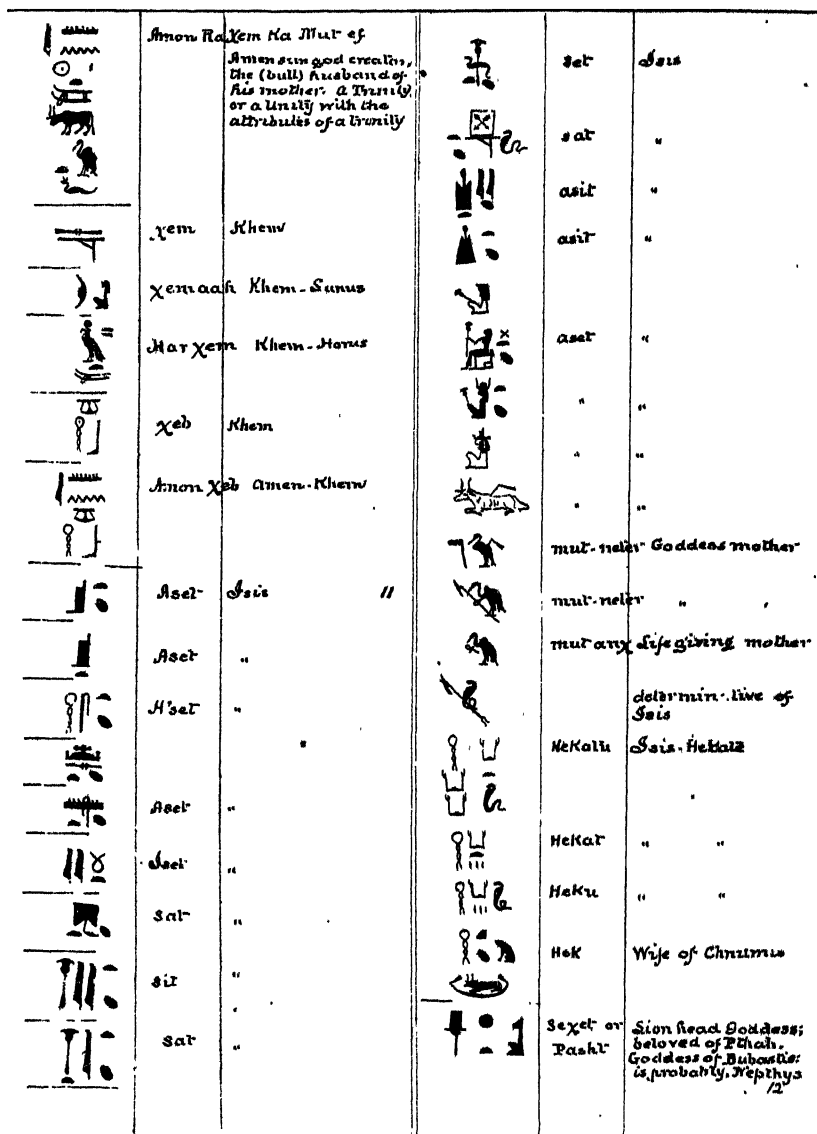 Amon Ra χem Ka Mut ef
Amen sun god creator,
the (bull) husband of
his mother. a Trinity
or a Unity with the
attributes of a trinity
χem Khem
χemaah Khem-Sunus
Har χem Khem-Horus
χeb Khem
Amon χeb Amen-Khem
Aset Isis "
Aset "
H'set "
"
Aset "
Iset "
Sat "
Sit "
"
Sat "
set Isis
sat "
asit "
asit "
aset "
" "
" "
" "
mut-neter Goddess mother
mut-neter "
mut anχ Life giving mother
determin-tive of
Isis
Hekatu Isis-Hekate
"
Hekat " "
Heku " "
Hek Wife of Chnumus
Seχet or Lion head Goddess;
Pasht beloved of Pthah.
Goddess of Bubastis:
is probably, Nepthys
12